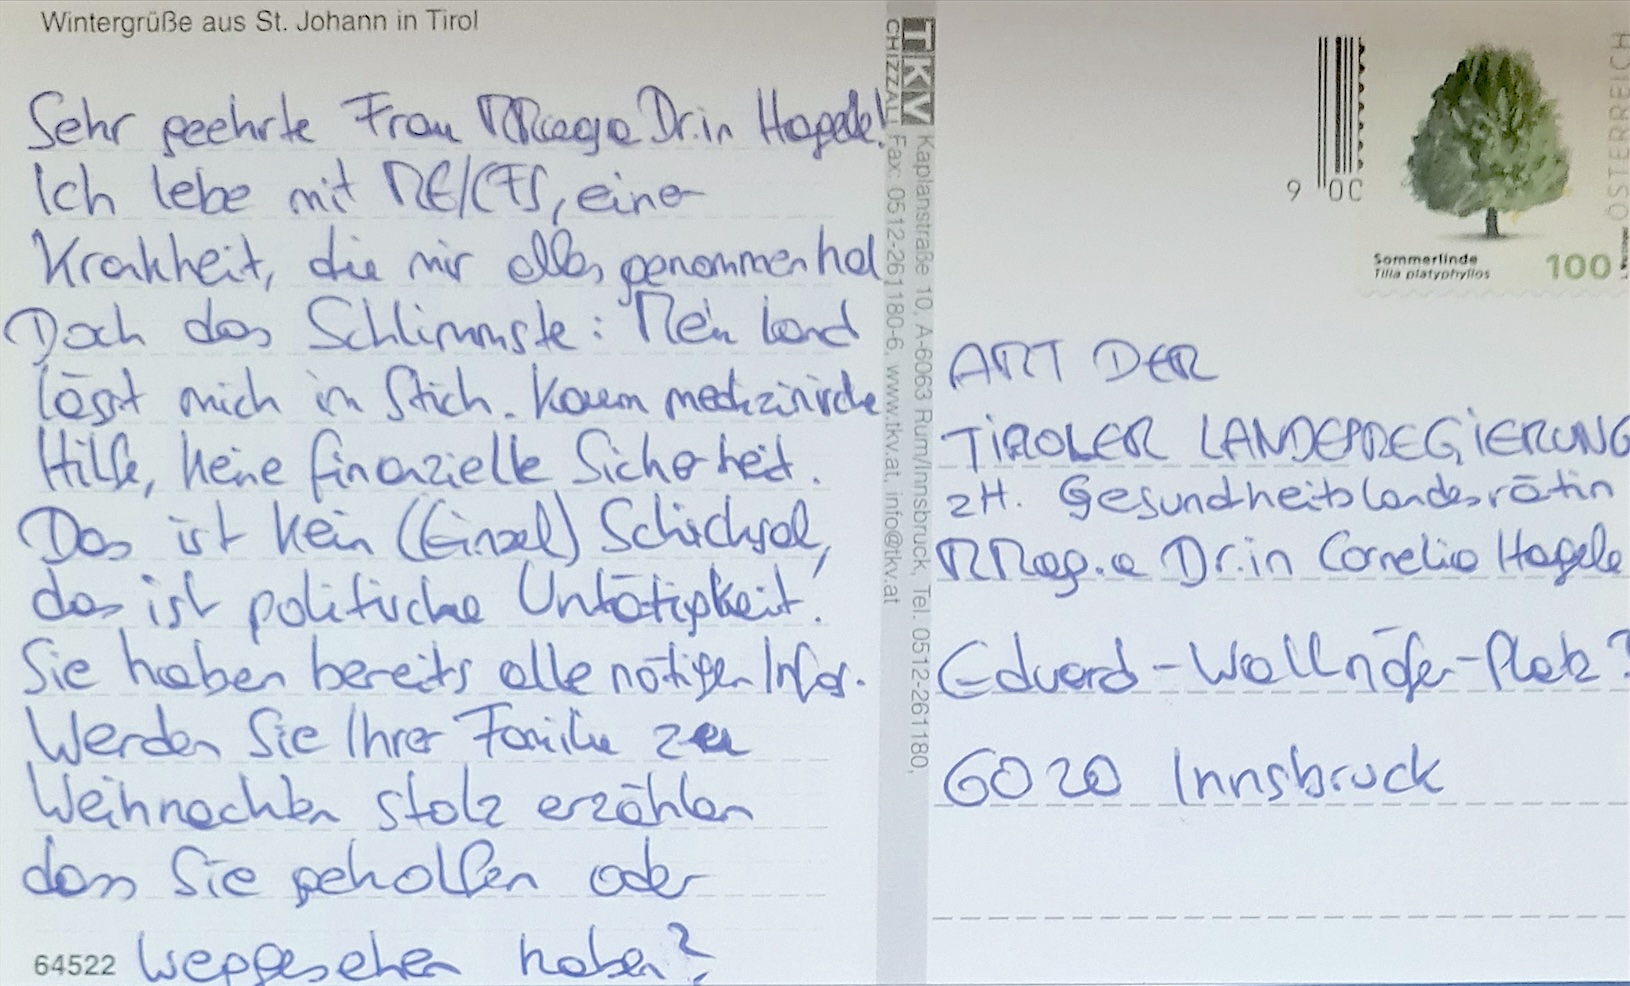 Wintergrüße aus St. Johann in Tirol
Sehr geehrte Frau MMaga Dr.in Hagele!
Ich lebe mit ME/CFS, einer
Krankheit, die mir alles genommen hat
Doch das Schlimmste: Mein Land
lässt mich in Stich. Kaum medizinische
Hilfe, keine finanzielle Sicherheit.
Das ist kein (Einzel) Schicksal,
das ist politische Untätigkeit!
Sie haben bereits alle nötigen Infos.
Werden Sie Ihrer Familie zu
Weihnachten stolz erzählen
dass Sie geholfen oder
weggesehen haben?
64522
TKV
CHIZZALI
Kaplanstraße 10, A-6063 Rum/Innsbruck, Tel. 0512-261180,
Fax: 0512-261180-6, www.tkv.at, info@tkv.at
9 0C
ÖSTERREICH
Sommerlinde
Tilia platyphyllos
100
AMT DER
TIROLER LANDESREGIERUNG
zH. Gesundheitslandesrätin
MMag.a Dr.in Cornelia Hagele
Eduard-Wallnöfer-Platz 3
6020 Innsbruck